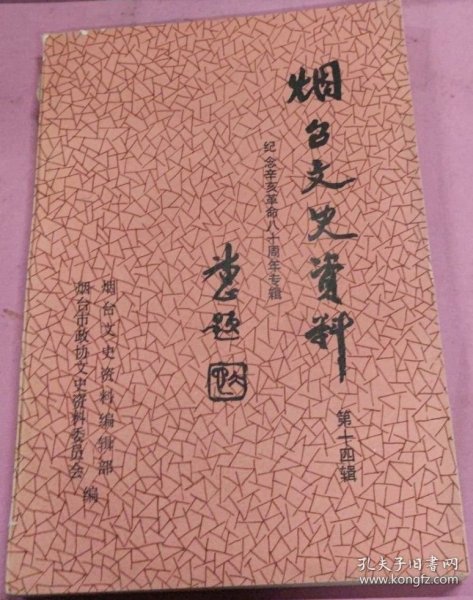 烟台文史资料
第十四辑
纪念辛亥革命八十周年专辑
题
烟台文史资料编辑部
烟台市政协文史资料委员会
编
孔夫子旧书网
www.kongfz.com